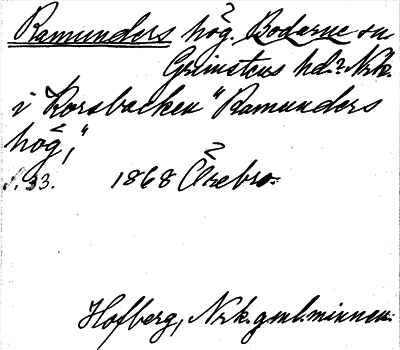 Ramunders hög. Bodarne sn
Grimstens hd.? Nrk.
i Korsbacken "Ramunders
hög,"
s. 33. 1868 Örebro.
Hofberg, Nrk. gml. minnen.